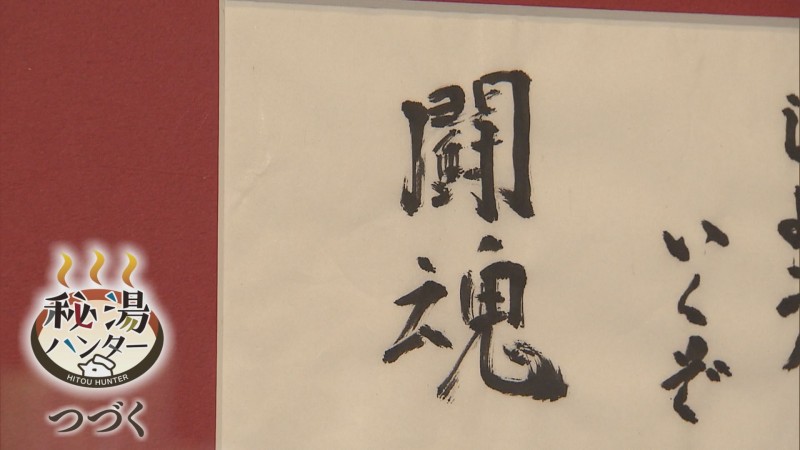 いくぞ
闘魂
秘湯
ハンター
HITOU HUNTER
つづく